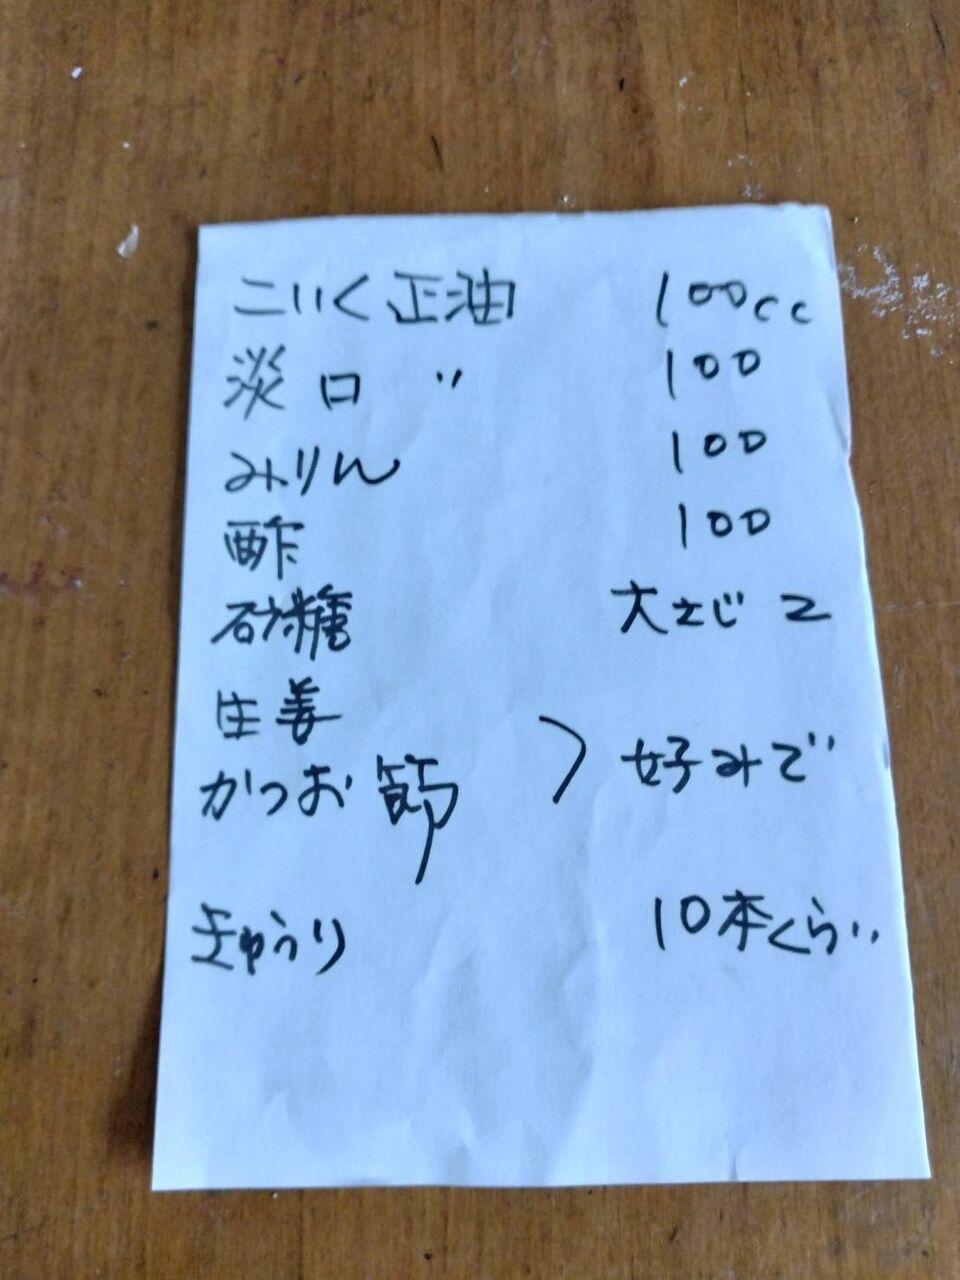 こいく正油 100cc
淡口 〃 100
みりん 100
酢 100
砂糖 大さじ 2
生姜
かつお節 ) 好みで
きゅうり 10本くらい